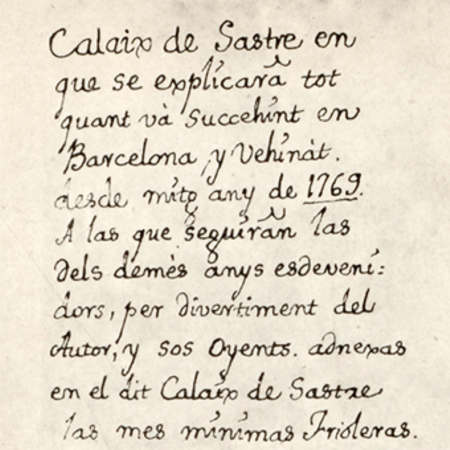 Calaix de Sastre en
que se explicarà tot
quant và succehint en
Barcelona, y Vehinàt.
desde mitg any de 1769.
A las que seguiràn las
dels demès anys esdeveni:
dors, per divertiment del
Autor, y sos Oyents. adnexas
en el dit Calaix de Sastre
las mes minimas Frioleras.